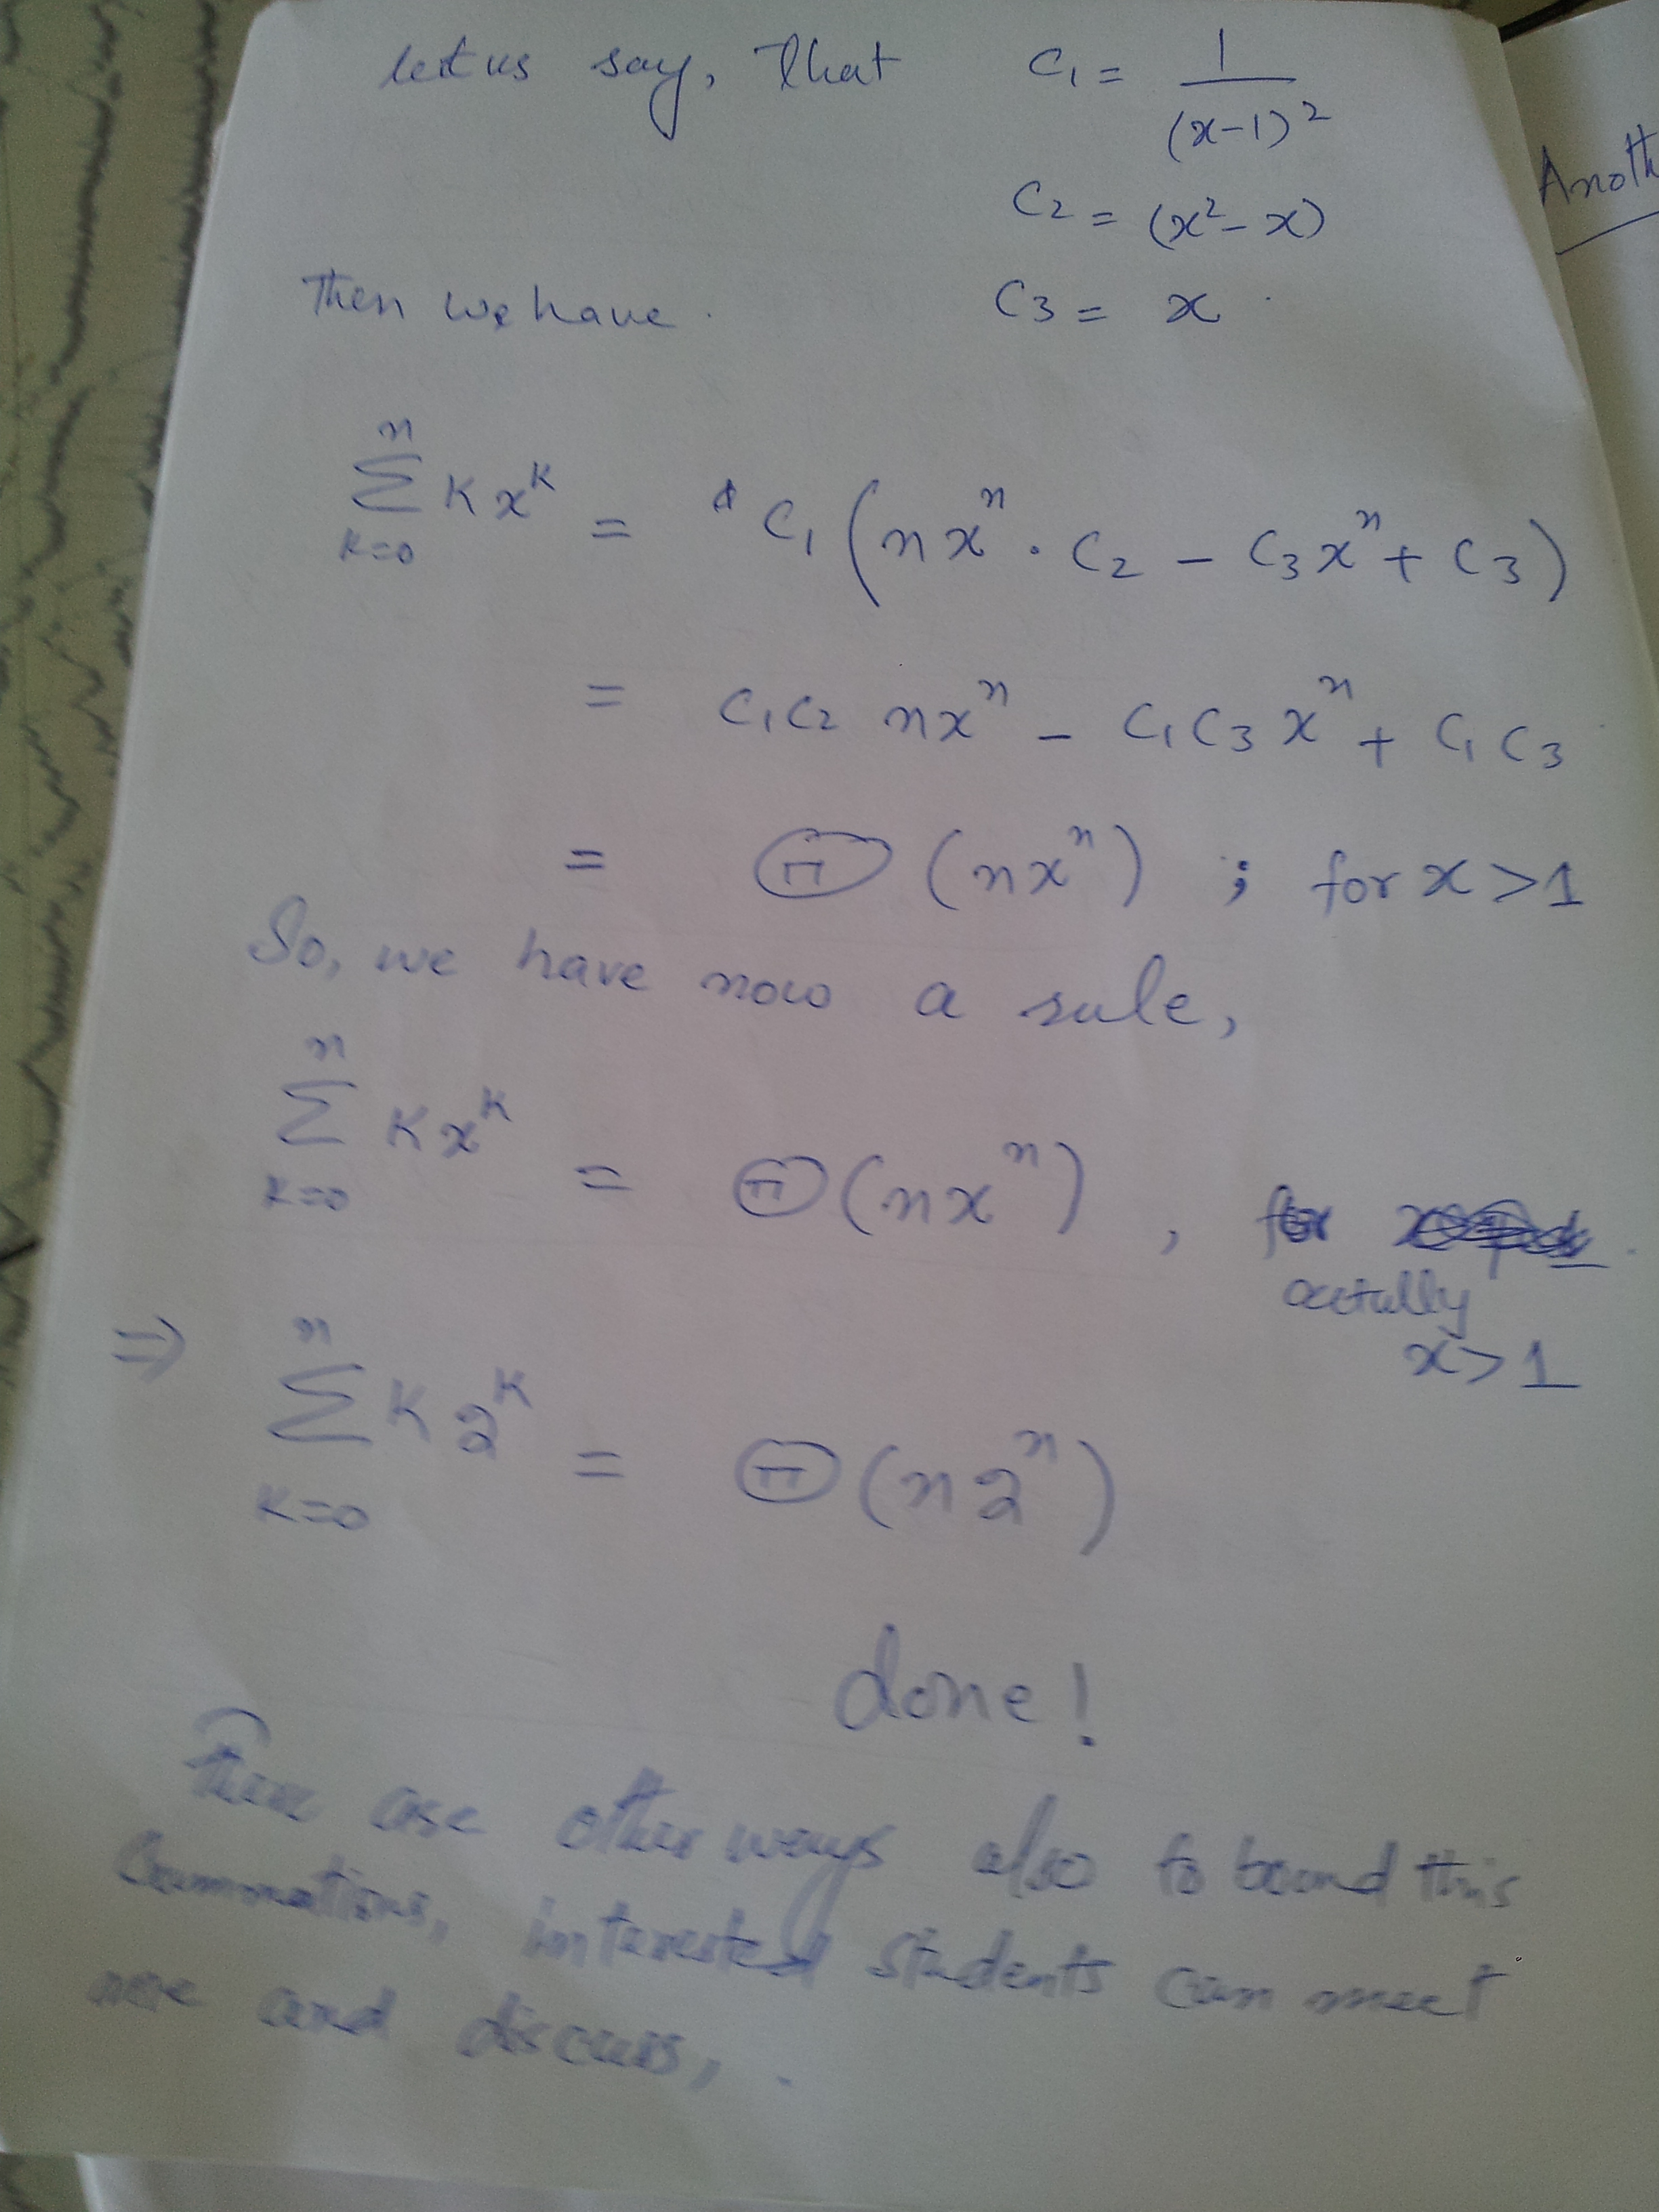 let us say, that C₁ = 1/(x-1)²
C₂ = (x²-x)
C₃ = x.
Then we have.
∑ₖ₌₀ⁿ k xᵏ = C₁(nxⁿ · C₂ - C₃xⁿ + C₃)
= C₁C₂ nxⁿ - C₁C₃xⁿ + C₁C₃
= Θ(nxⁿ) ; for x>1
So, we have now a rule,
∑ₖ₌₀ⁿ k xᵏ = Θ(nxⁿ), for
actually
x>1
⇒ ∑ₖ₌₀ⁿ k 2ᵏ = Θ(n2ⁿ)
done!
There are other ways also to bound this
Summations, interested students can meet
me and discuss,
Anoth